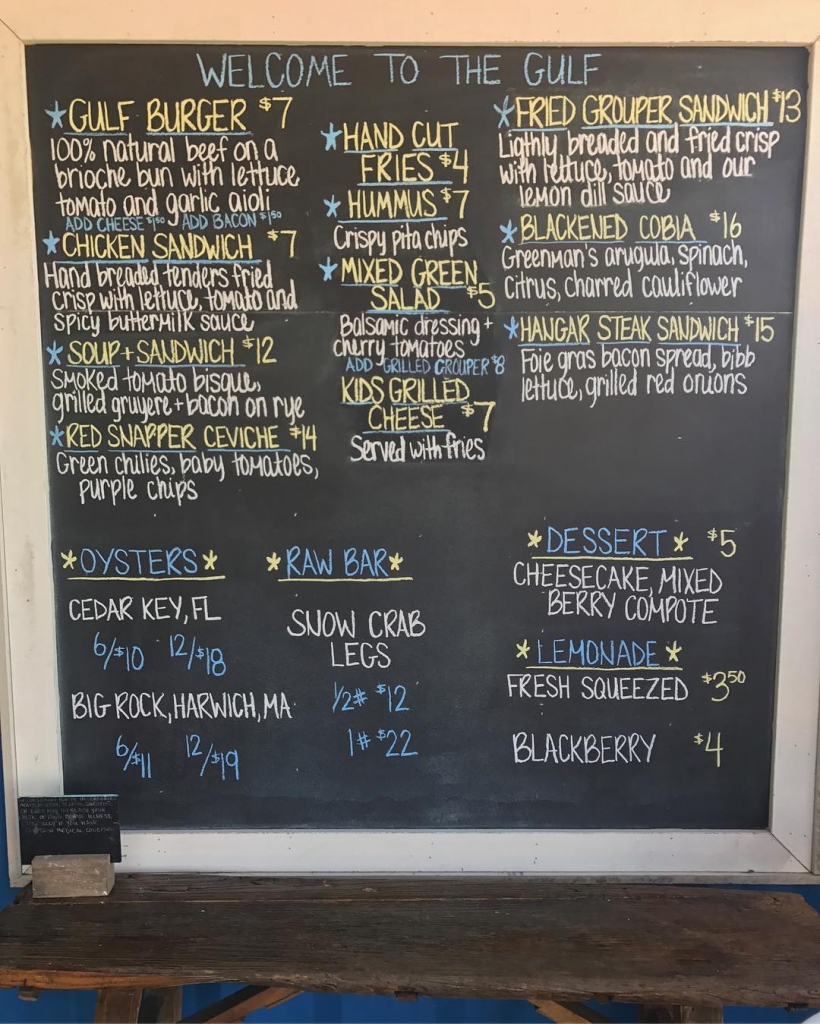 WELCOME TO THE GULF
*GULF BURGER $7
100% natural beef on a
brioche bun with lettuce
tomato and garlic aioli
ADD CHEESE $1.50 ADD BACON $1.50
*CHICKEN SANDWICH $7
Hand breaded tenders fried
crisp with lettuce, tomato and
spicy buttermilk sauce
*SOUP + SANDWICH $12
Smoked tomato bisque,
grilled gruyere + bacon on rye
*RED SNAPPER CEVICHE $14
Green chilies, baby tomatoes,
purple chips
*HAND CUT
FRIES $4
*HUMMUS $7
Crispy pita chips
*MIXED GREEN
SALAD $5
Balsamic dressing +
cherry tomatoes
ADD - GRILLED GROUPER $8
KIDS GRILLED
CHEESE $7
Served with fries
*FRIED GROUPER SANDWICH $13
Ligthly breaded and fried crisp
with lettuce, tomato and our
lemon dill sauce
*BLACKENED COBIA $16
Greenman's arugula, spinach,
citrus, charred cauliflower
*HANGAR STEAK SANDWICH $15
Foie gras bacon spread, bibb
lettuce, grilled red onions
*OYSTERS*
CEDAR KEY, FL
6/$10 12/$18
BIG ROCK, HARWICH, MA
6/$11 12/$19
*RAW BAR*
SNOW CRAB
LEGS
1/2# $12
1# $22
*DESSERT* $5
CHEESECAKE, MIXED
BERRY COMPOTE
*LEMONADE*
FRESH SQUEEZED $3.50
BLACKBERRY $4